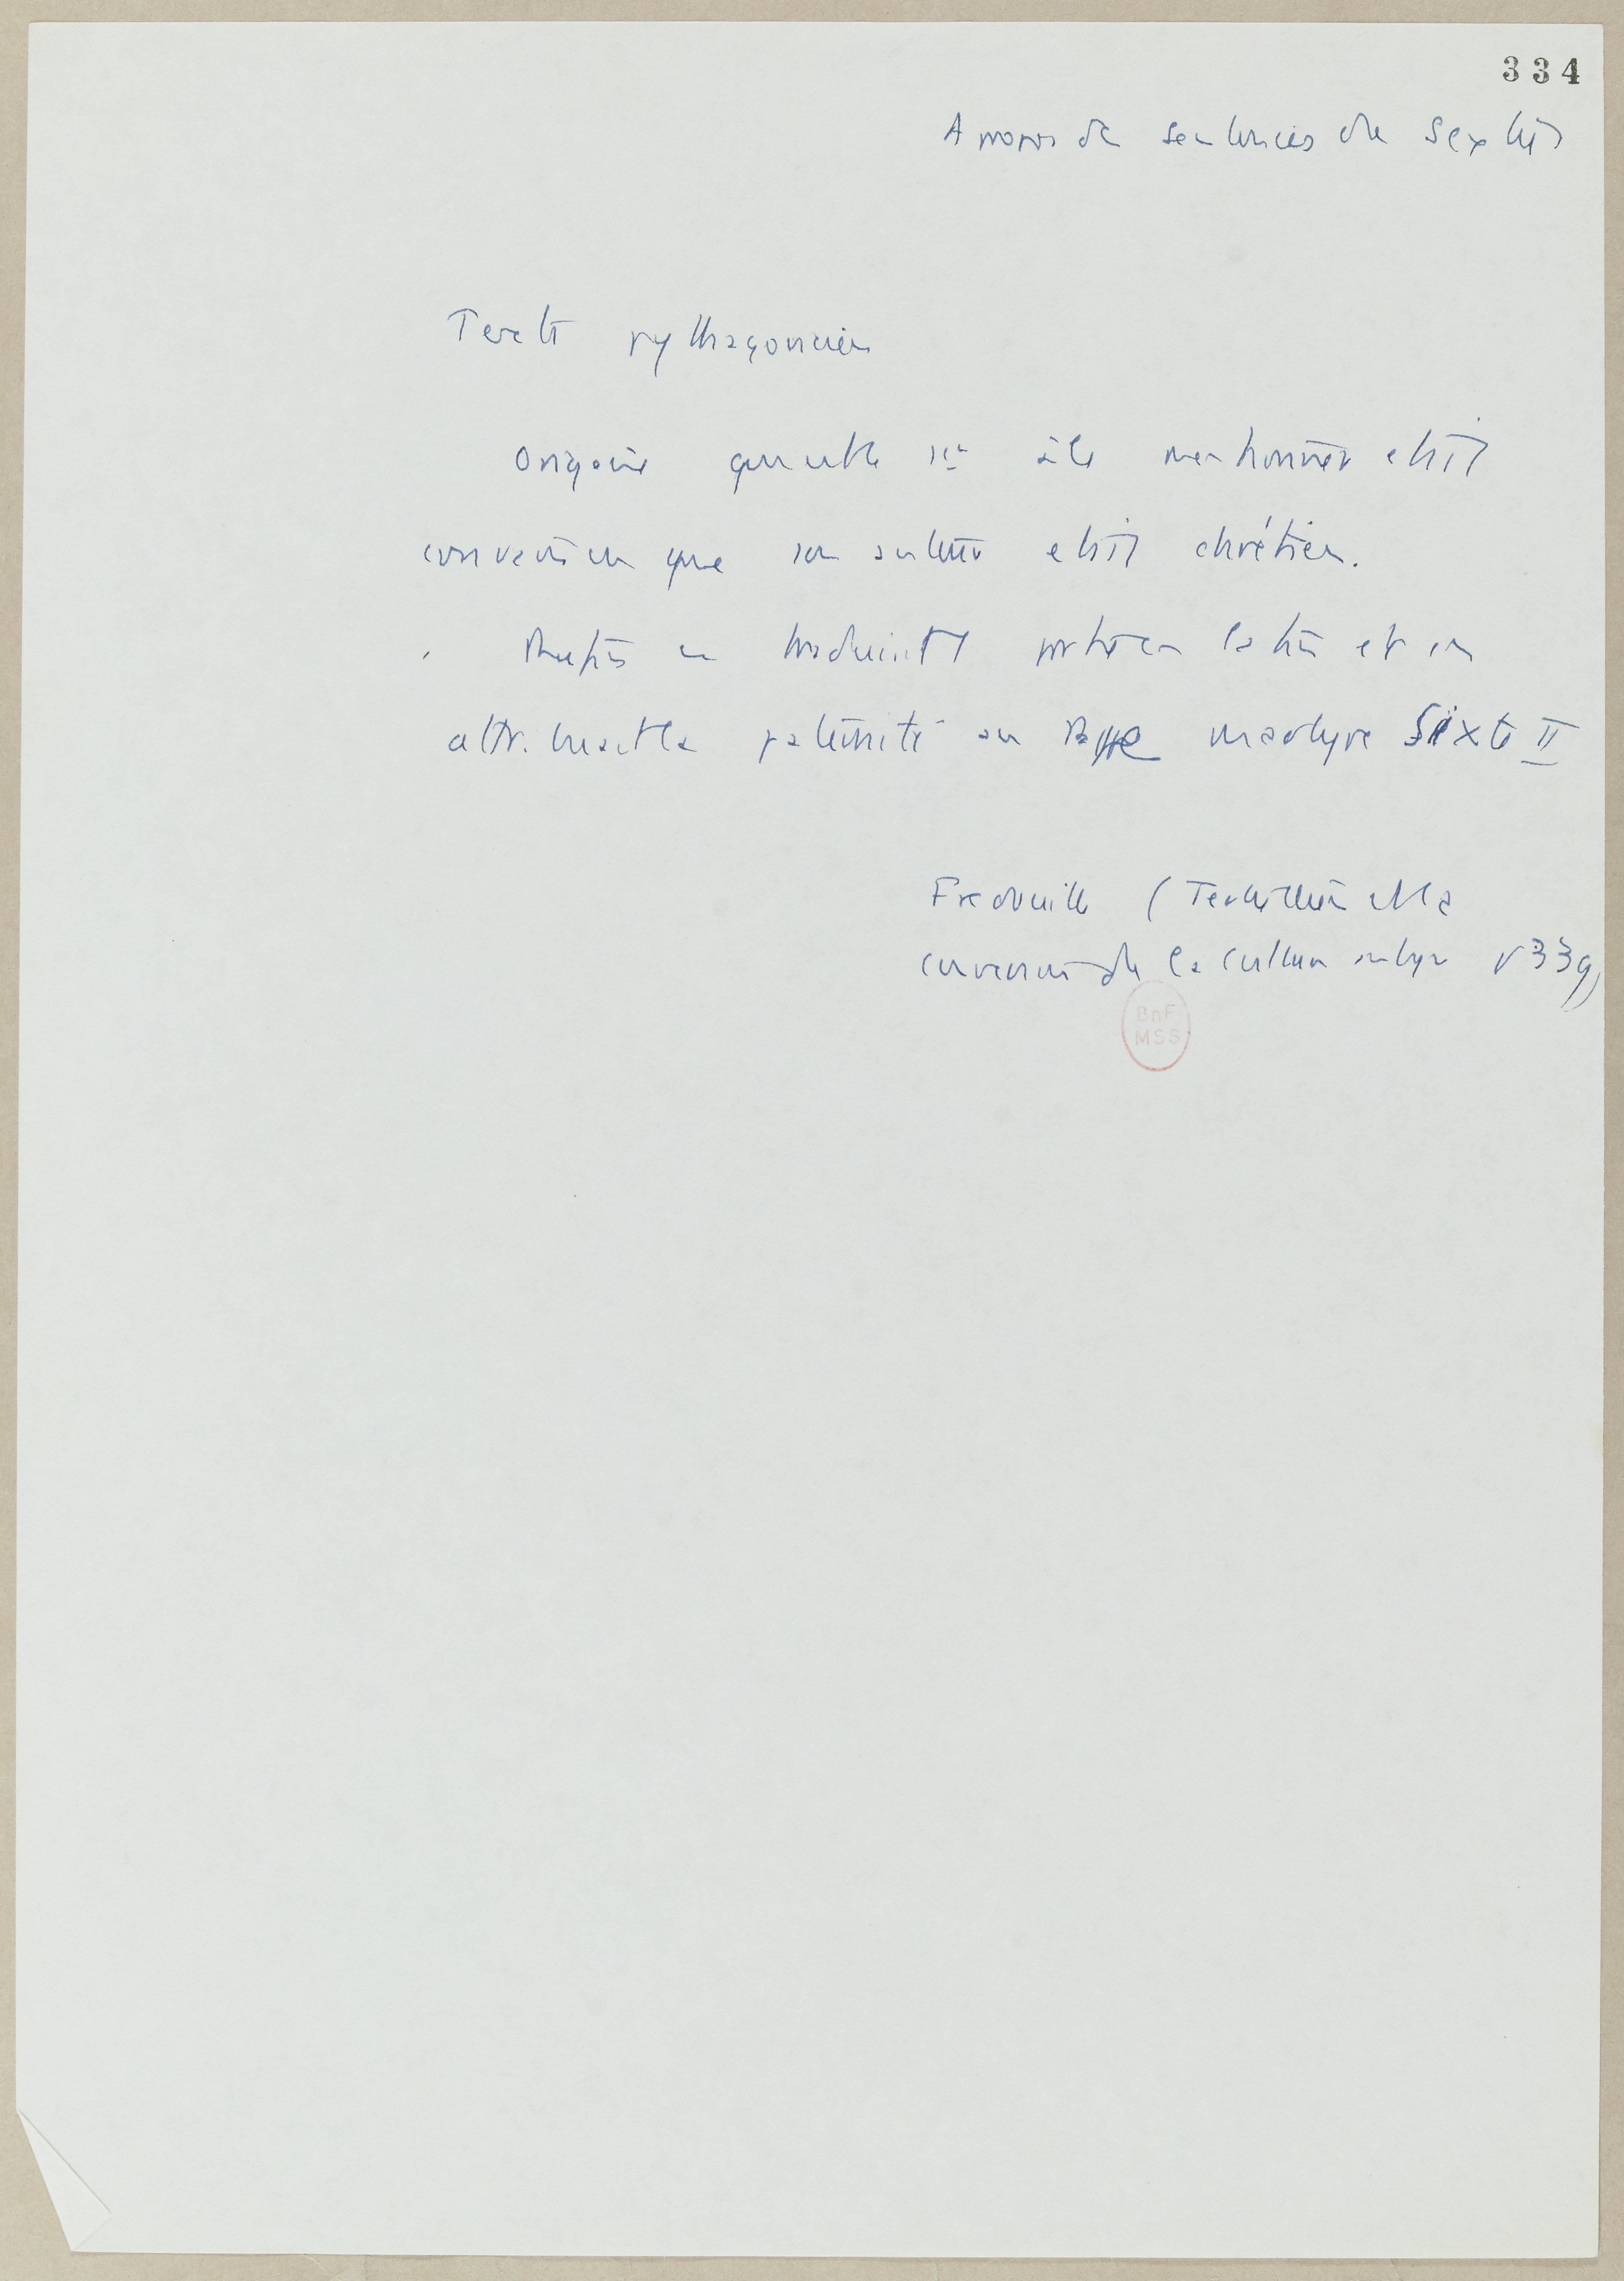 334
A propos de sentences de Sextus
Texte pythagoricien
Origène qui est le 1er à le mentionner était
convaincu que son auteur était chrétien.
Rufin en traduisit partie en latin et en
attribua la paternité au Pape martyre Sixte II
Fredouille (Tertullien et la
conversion de la culture antique p 339)
BnF
MSS